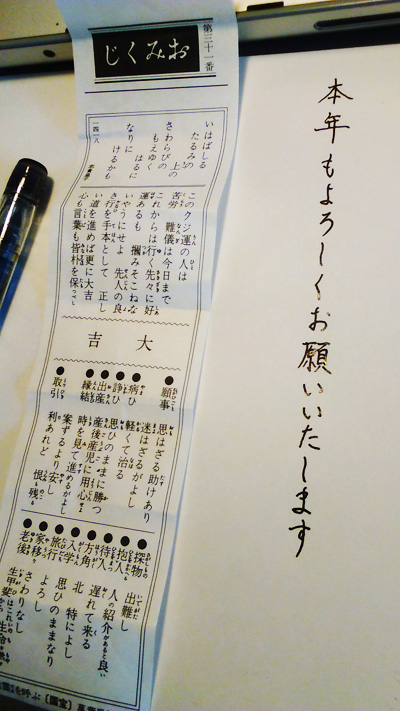 第三十一番
おみくじ
いはばしる
たるみの
上の
さわらびの
もえゆく
はるに
なりに
けるかも
一四一八
このクジ運の人は
苦労 難儀は今日まで
これからは行く先々に好
運あるも 摑みそこねな
いやうにせよ 先人の良
き行を手本として 正し
い道を進めば更に大吉
心も言葉も皆朴を保つべし
大吉
●願事 思はざる助けあり
迷はざるがよし
●病ひ 軽くて治る
●諍ひ 思ひのままに勝つ
●出産 産後産児に用心
●縁結 時を見て進めるがよし
案ずるより安し
●取引 利あれど 恨を残る
●探物 出難し
●抱人 人の紹介があると良い
●待人 遅れて来る
●方角 北 特によし
●入学 思ひのままなり
●旅行 よろし
●家移り さわりなし
●老後 生甲斐
本年もよろしくお願いいたします